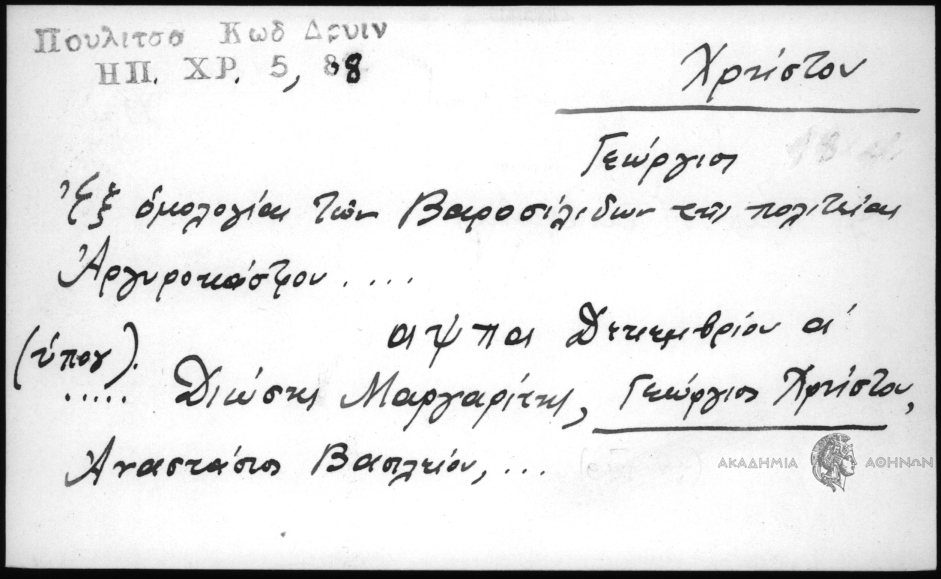 Πουλιτσα Κωδ Δρυιν
ΗΠ. ΧΡ. 5, 88
Χρήστου
Γεώργιος
Ἐξ ὁμολογίας τῶν Βαροσίλιδων τῆς πολιτείας
Ἀργυροκάστρου . . . .
αψπα Δεκεμβρίου α'
(ὑπογ).
. . . . . Διώστης Μαργαρίτης, Γεώργιος Χρήστου,
Ἀναστάσιος Βασιλείου, ...
ΑΚΑΔΗΜΙΑ ΑΘΗΝΩΝ